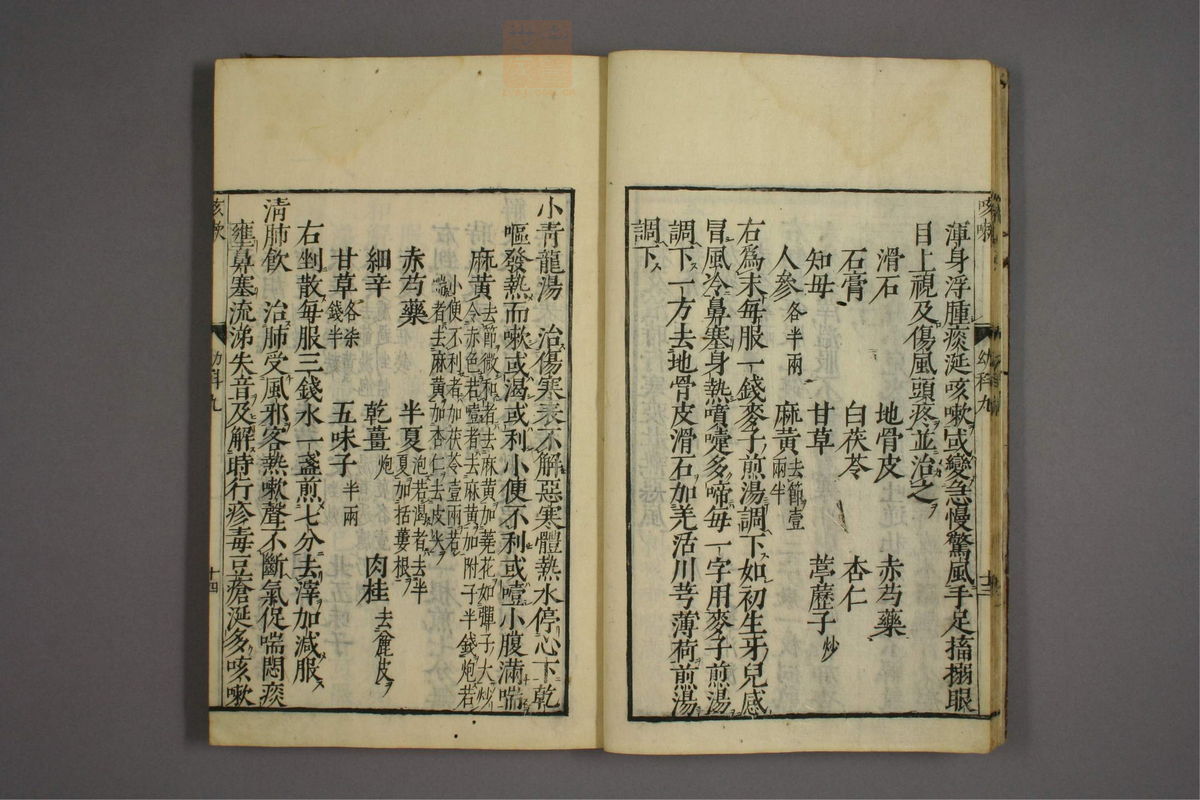 咳嗽
幼科九
十三
渾身浮腫痰涎咳嗽或變急慢驚風手足搐搦眼
目上視及傷風頭疼並治之
滑石 地骨皮 赤芍藥
石膏 白茯苓 杏仁
知母 甘草 葶藶子炒
人參各半兩 麻黃去節壹兩半
右爲末每服一錢麥子煎湯調下如初生牙兒感
冒風冷鼻塞身熱噴嚏多啼每一字用麥子煎湯
調下一方去地骨皮滑石加羌活川芎薄荷煎湯
調下
小青龍湯 治傷寒表不解惡寒體熱水停心下乾
嘔發熱而嗽或渴或利小便不利或噎小腹滿喘
麻黃去節微和者去麻黃加蕘花如彈子大炒令赤色若噎者去麻黃加附子半錢炮若小便不利者加茯苓壹兩若喘者去麻黃加杏仁去皮尖
赤芍藥 半夏泡若渴者去半夏加括蔞根
細辛 乾薑炮 肉桂去麁皮
甘草各柒錢半 五味子半兩
右剉散每服三錢水一盞煎七分去滓加減服
淸肺飮 治肺受風邪客熱嗽聲不斷氣促喘悶痰
壅鼻塞流涕失音及解時行疹毒豆瘡涎多咳嗽
咳嗽
幼科九
十四